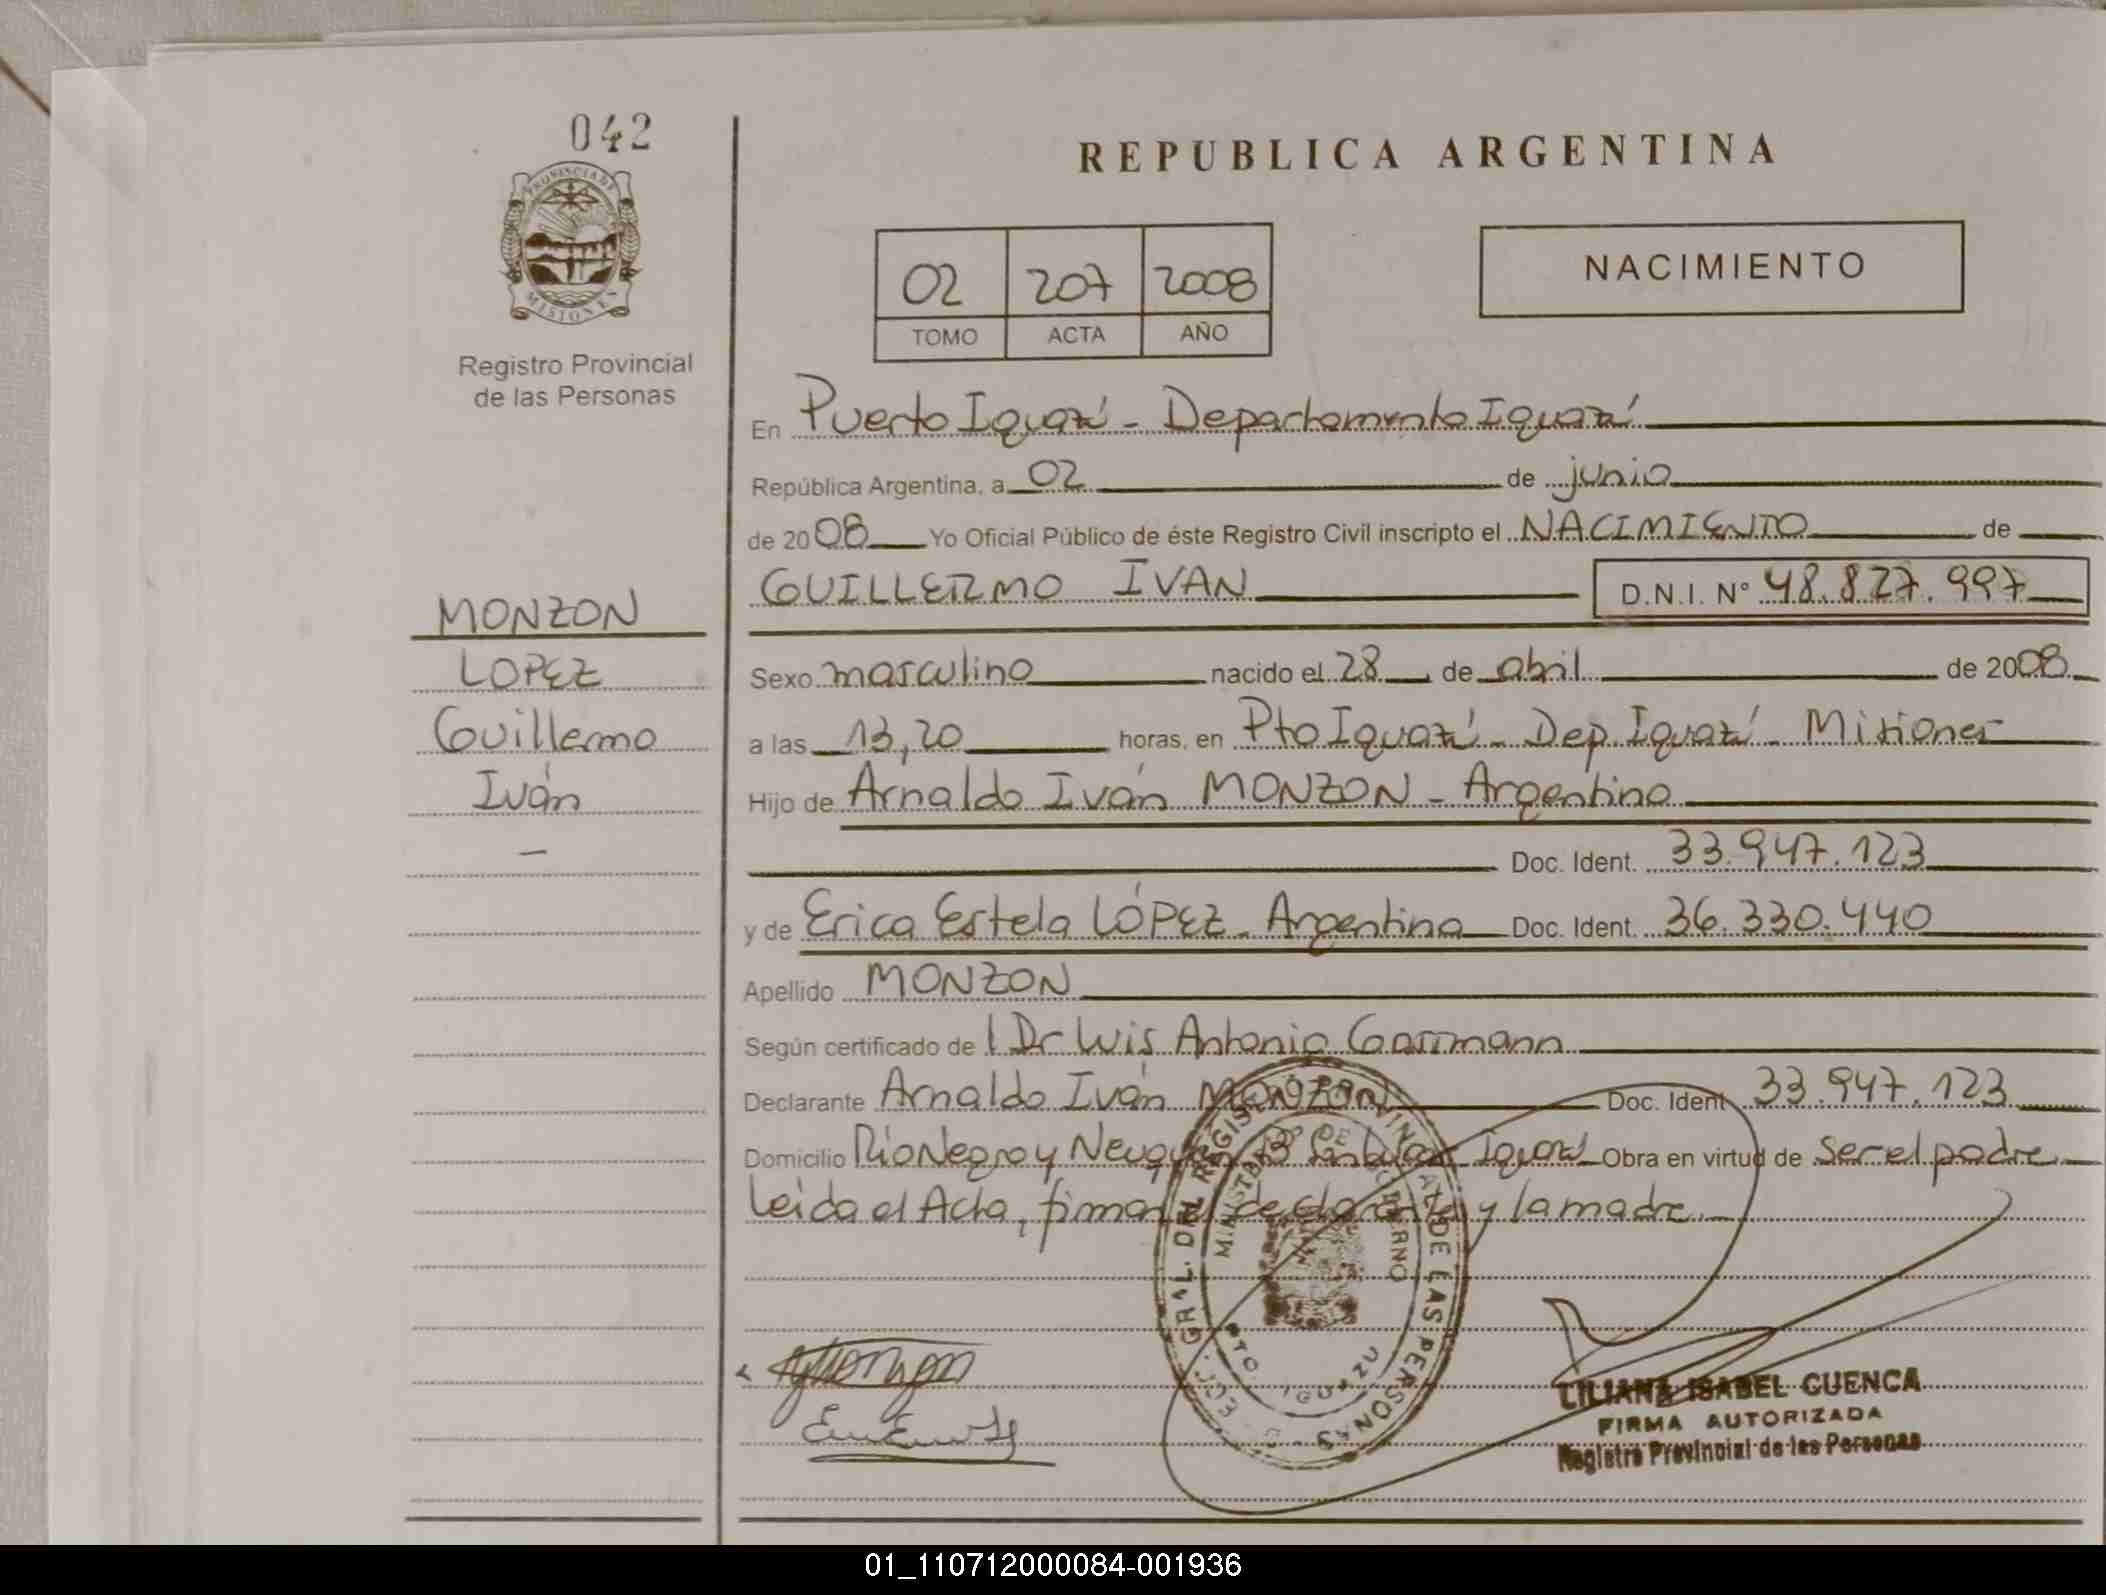 042
PROVINCIA DE
MISIONES
Registro Provincial
de las Personas
REPUBLICA ARGENTINA
02 207 2008
TOMO ACTA AÑO
NACIMIENTO
En Puerto Iguazú - Departamento Iguazú
República Argentina, a 02 de junio
de 2008 Yo Oficial Público de éste Registro Civil inscripto el NACIMIENTO de
GUILLERMO IVAN D.N.I. Nº 48.827.997
MONZON
LOPEZ
Guillermo
Iván
-
Sexo masculino nacido el 28 de abril de 2008
a las 13,20 horas, en Pto Iguazú - Dep. Iguazú - Misiones
Hijo de Arnaldo Iván MONZON - Argentino
Doc. Ident. 33.947.123
y de Erica Estela LÓPEZ - Argentina Doc. Ident. 36.330.440
Apellido MONZON
Según certificado de l Dr Luis Antonio
Declarante Arnaldo Iván MONZON Doc. Ident. 33.947.123
Domicilio Rio Negro y Neuquén Iguazú Obra en virtud de ser el padre
Leída el Acta, firman el declarante y la madre.
GRAL. DEL REGISTRO PROVINCIAL DE LAS PERSONAS
MINISTERIO DE GOBIERNO
PTO. IGUAZU
LILIANA ISABEL CUENCA
FIRMA AUTORIZADA
Registro Provincial de las Personas
01_110712000084-001936